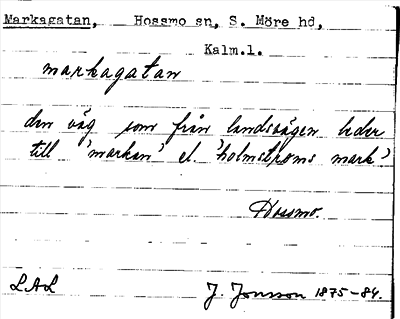 Markagatan, Hossmo sn, S. Möre hd,
Kalm.l.
markagatan
den väg som från landsvägen leder
till 'markan' el. 'holmstroms mark'
Hossmo.
LAL J. Jonsson 1875-84.